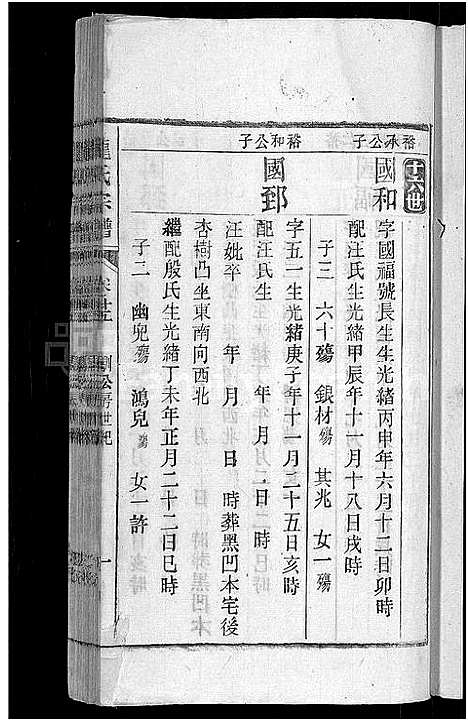 十六世
裕承公子
國和
字國福號長生生光緒丙申年六月十二日卯時
配汪氏生光緒甲辰年十一月十八日戌時
子三 六十殤 銀材殤 其兆 女一殤
裕和公子
國郅
字五一生光緒庚子年十一月二十五日亥時
配汪氏生 年 月 日 時
汪妣卒 年 月 日 時葬黑凹本宅後
杏樹凸坐東南向西北
繼配殷氏生光緒丁未年正月二十二日巳時
子二 幽兜殤 鴻兒殤 女一許
氏宗譜
卷廿五
公房世紀
一